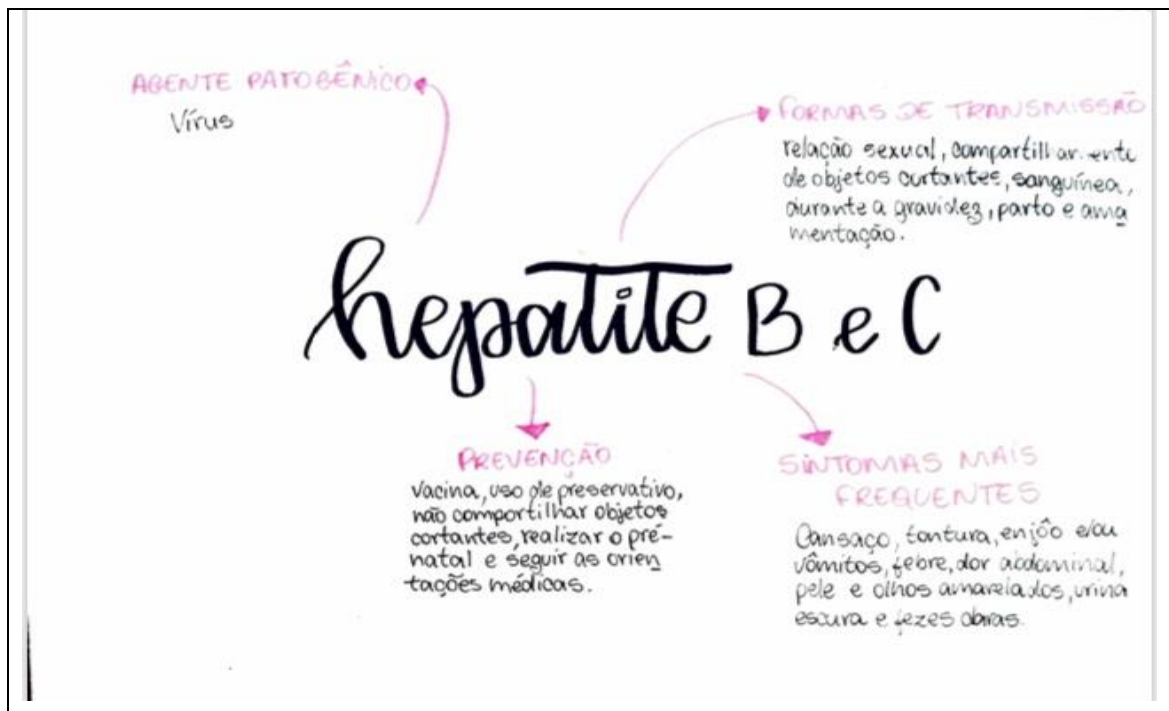 AGENTE PATOGÊNICO
Vírus
FORMAS DE TRANSMISSÃO
relação sexual, compartilhamento
de objetos cortantes, sanguínea,
durante a gravidez, parto e ama
mentação.
hepatite B e C
PREVENÇÃO
Vacina, uso de preservativo,
não compartilhar objetos
cortantes, realizar o pré-
natal e seguir as orien
tações médicas.
SINTOMAS MAIS
FREQUENTES
Cansaço, tontura, enjôo e/ou
vômitos, febre, dor abdominal,
pele e olhos amarelados, urina
escura e fezes claras.